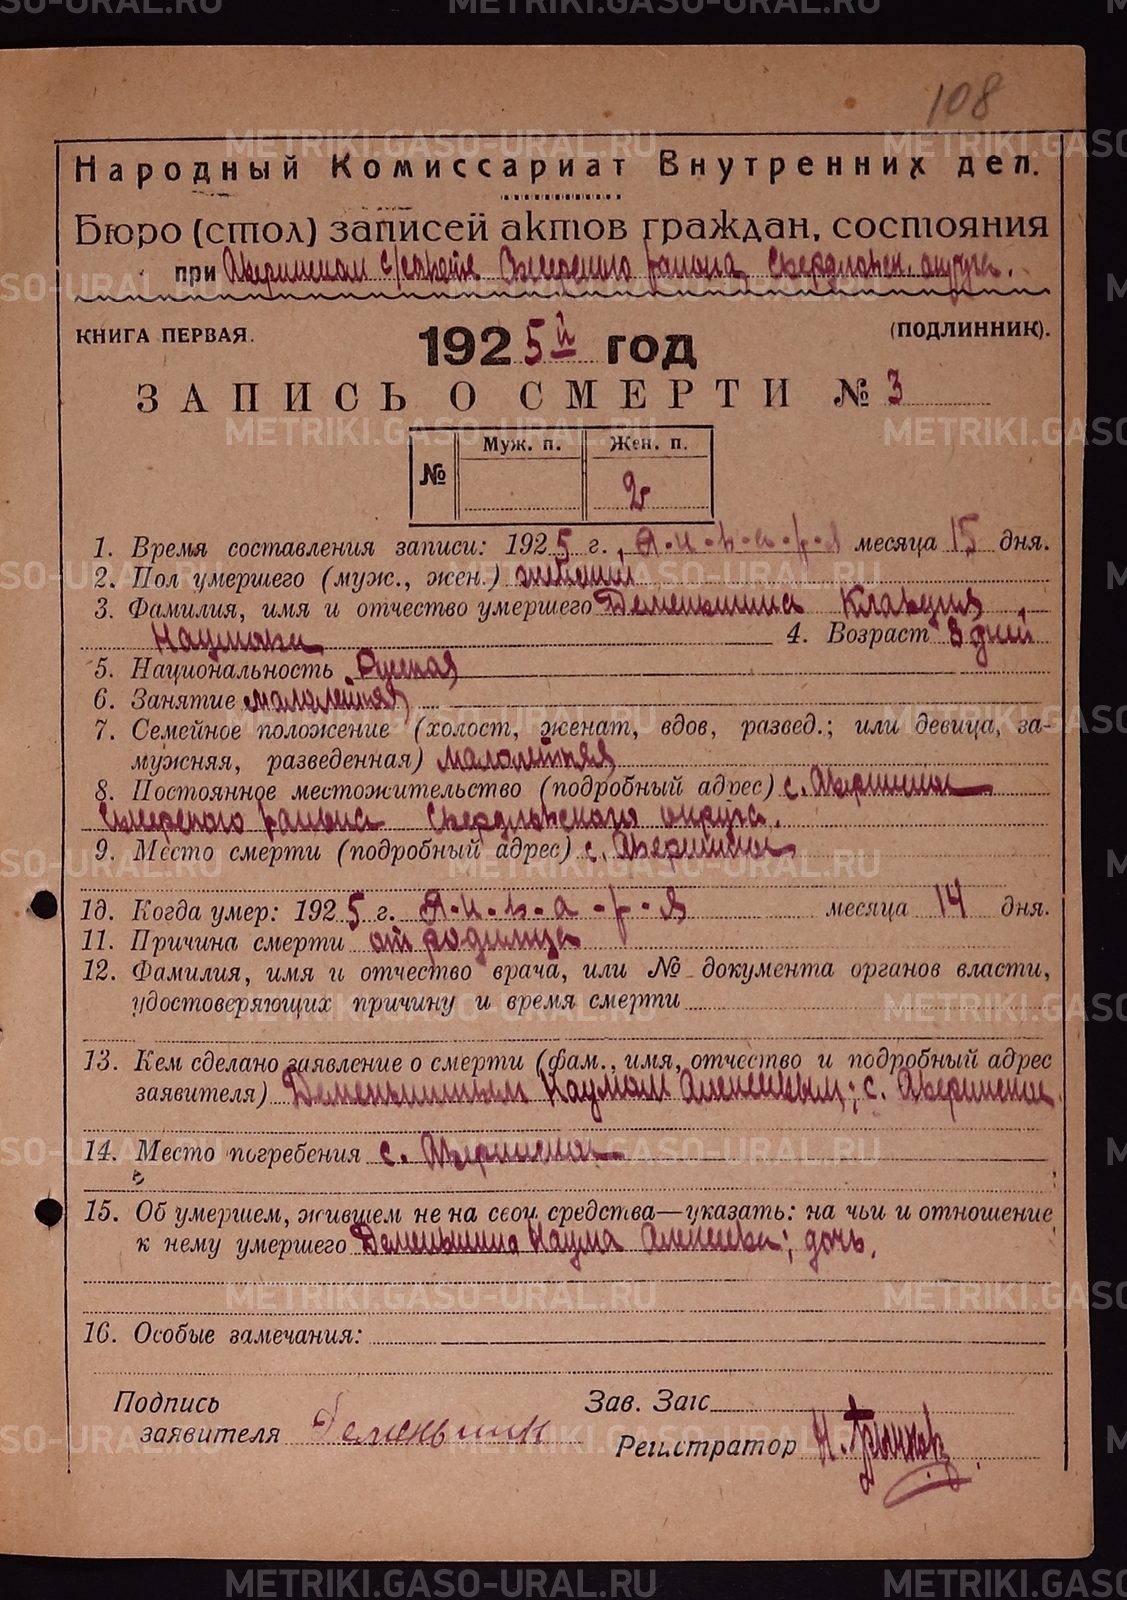 108
Народный Комиссариат Внутренних дел.
Бюро (стол) записей актов граждан, состояния
при Аверинском с/совете Сысертского района, Свердловск. округа.
КНИГА ПЕРВАЯ. 1925й год (ПОДЛИННИК).
ЗАПИСЬ О СМЕРТИ № 3
№ Муж. п. Жен. п.
2
1. Время составления записи: 1925 г., Я-н-в-а-р-я месяца 15 дня.
2. Пол умершего (муж., жен.) женский
3. Фамилия, имя и отчество умершего Деменьшина Клавдия
Наумовна 4. Возраст 8 дней
5. Национальность Русская
6. Занятие малолетняя
7. Семейное положение (холост, женат, вдов, развед.; или девица, за-
мужняя, разведенная) малолетняя
8. Постоянное местожительство (подробный адрес) с. Аверинское
Сысертского района Свердловского округа.
9. Место смерти (подробный адрес) с. Аверинское
1д. Когда умер: 1925 г. Я-н-в-а-р-я месяца 14 дня.
11. Причина смерти от родимца
12. Фамилия, имя и отчество врача, или № документа органов власти,
удостоверяющих причину и время смерти
13. Кем сделано заявление о смерти (фам., имя, отчество и подробный адрес
заявителя) Деменьшиным Наумом Алексеевым; с. Аверинское.
14. Место погребения с. Аверинское
15. Об умершем, жившем не на свои средства—указать: на чьи и отношение
к нему умершего Деменьшина Наума Алексеева; дочь.
16. Особые замечания:
Подпись Зав. Загс
заявителя Деменьшин Регистратор Н.
METRIKI.GASO-URAL.RU